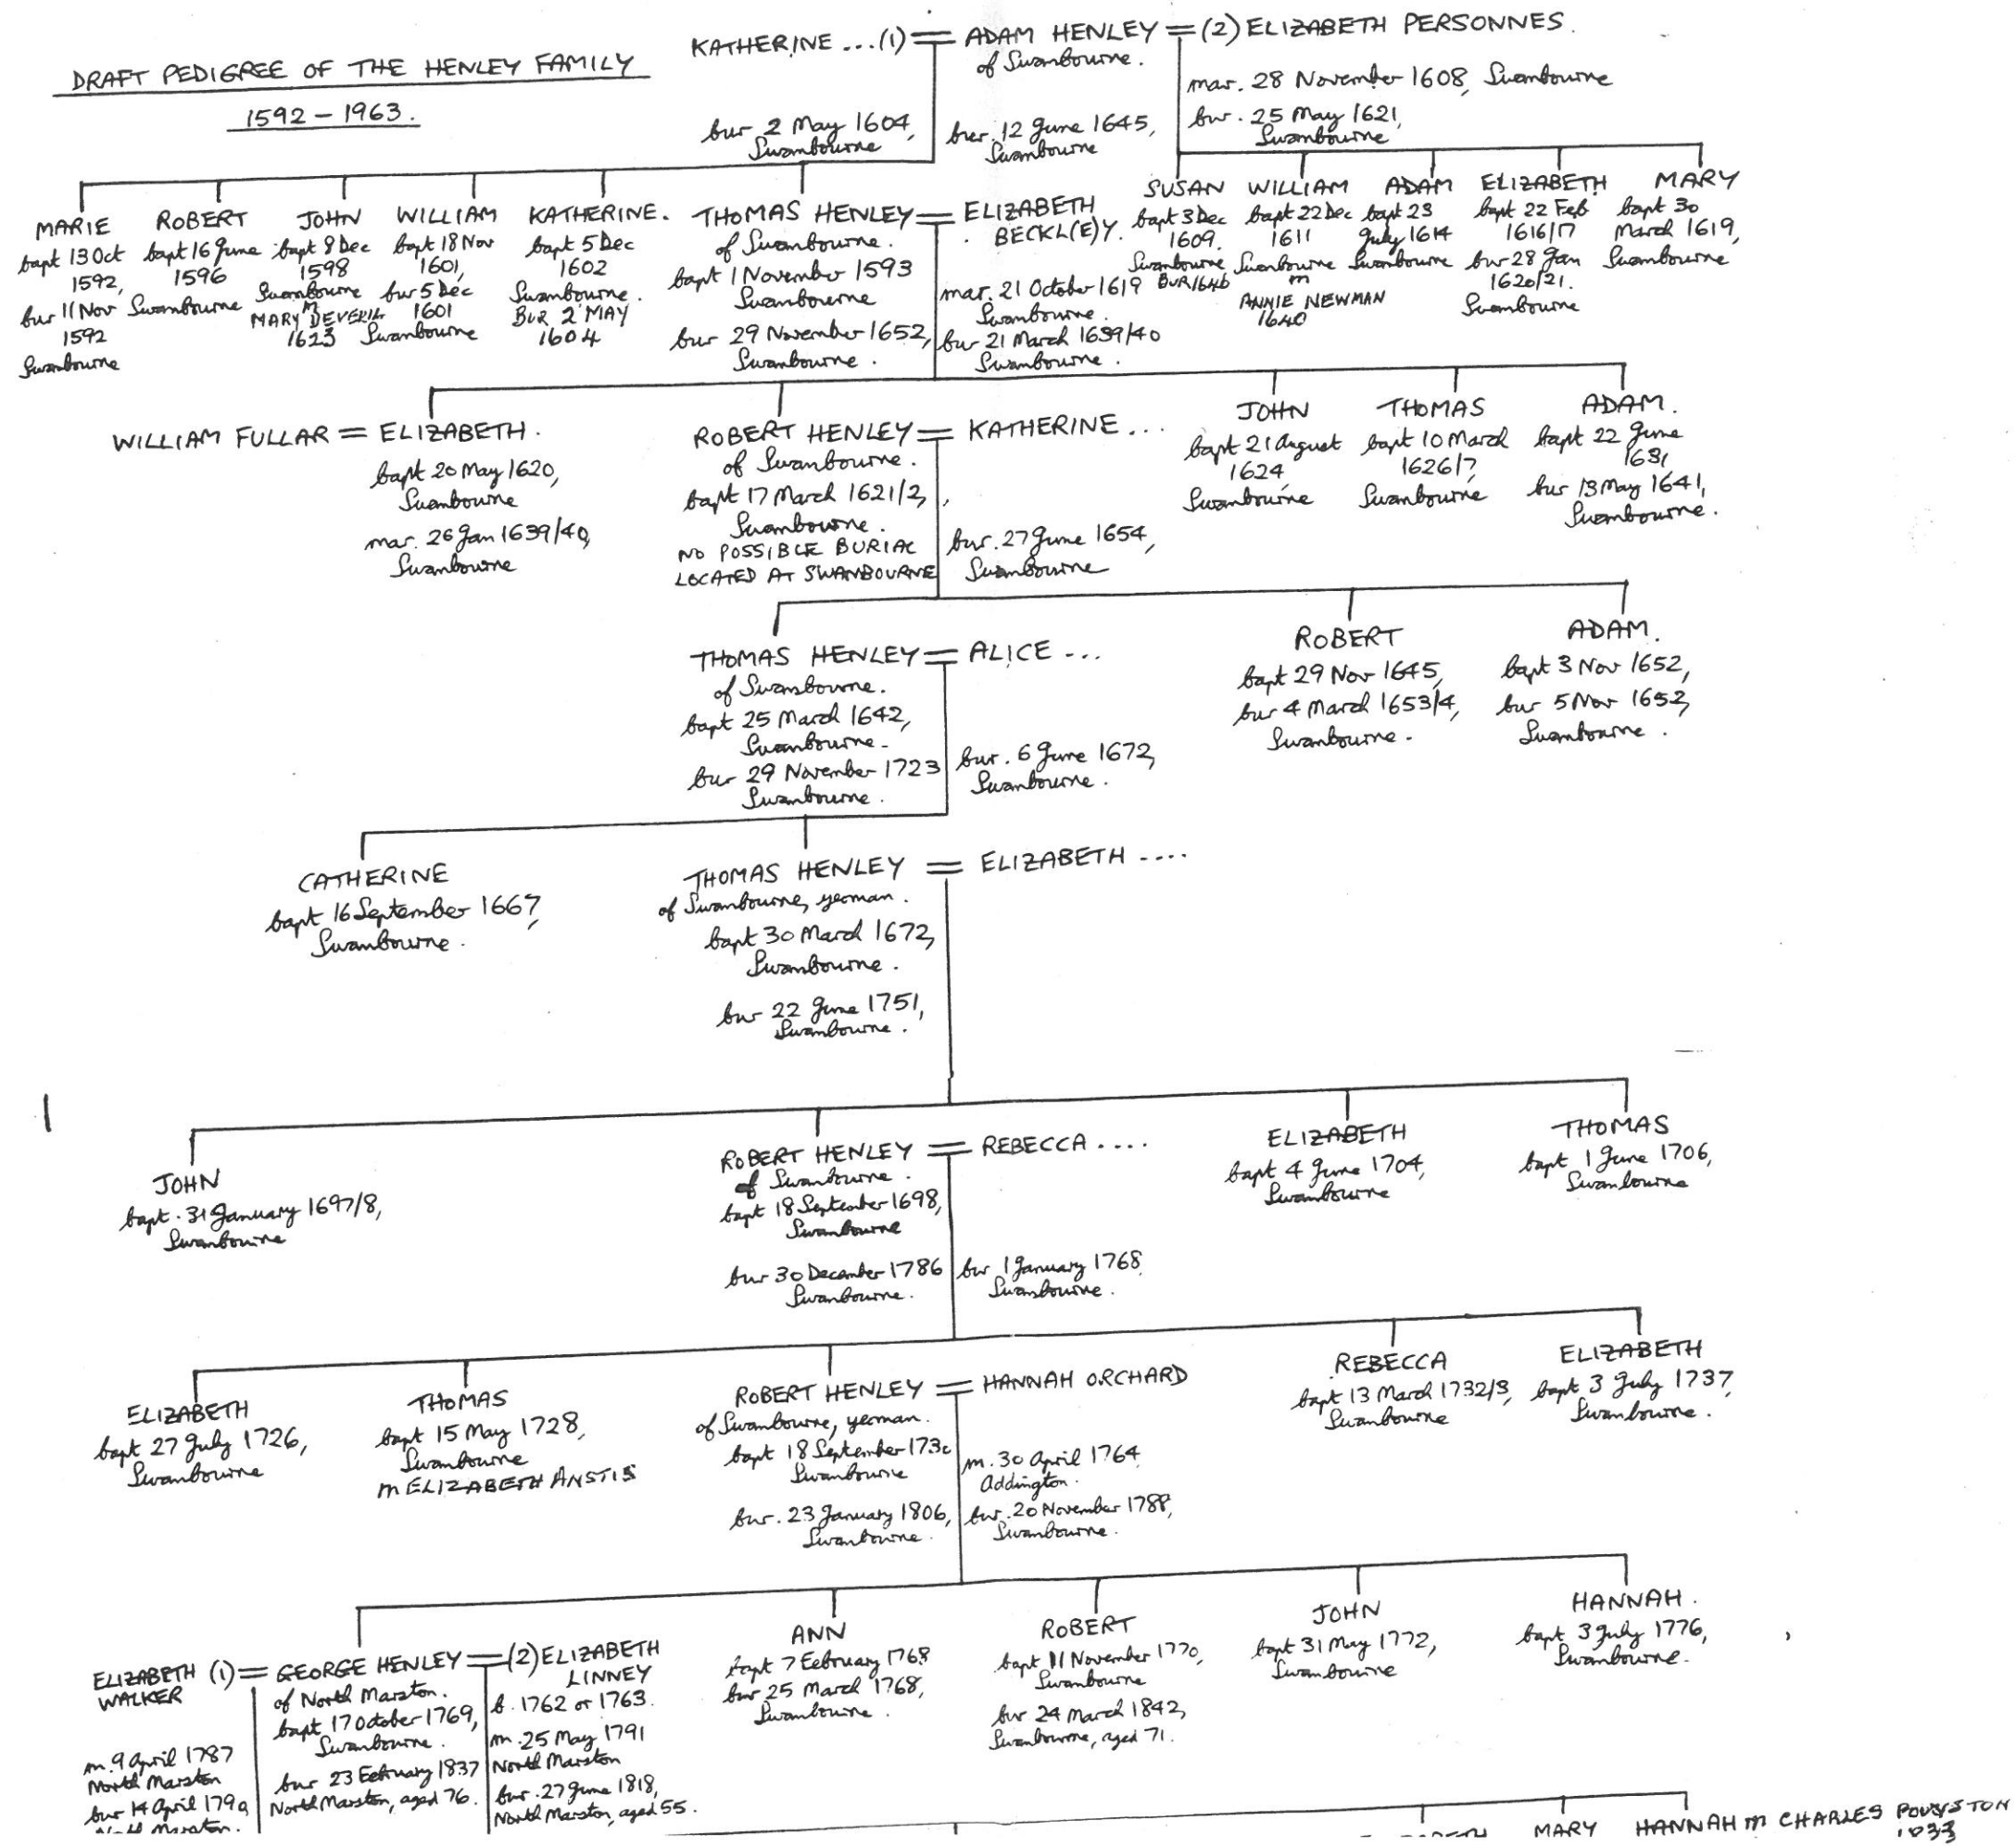 DRAFT PEDIGREE OF THE HENLEY FAMILY
1592 – 1963.
KATHERINE ...(1) = ADAM HENLEY = (2) ELIZABETH PERSONNES.
of Swanbourne.
mar. 28 November 1608, Swanbourne
bur 2 May 1604,
Swanbourne
bur. 12 June 1645,
Swanbourne
bur. 25 May 1621,
Swanbourne
MARIE
bapt 13 Oct
1592,
bur 11 Nov
1592
Swanbourne
ROBERT
bapt 16 June
1596
Swanbourne
JOHN
bapt 8 Dec
1598
Swanbourne
M
MARY DEVERILL
1623
WILLIAM
bapt 18 Nov
1601,
bur 5 Dec
1601
Swanbourne
KATHERINE.
bapt 5 Dec
1602
Swanbourne.
BUR 2 MAY
1604
THOMAS HENLEY =
of Swanbourne.
bapt 1 November 1593
Swanbourne
bur 29 November 1652,
Swanbourne.
ELIZABETH
BECKL(E)Y.
mar. 21 October 1619
Swanbourne.
bur 21 March 1639/40
Swanbourne.
SUSAN
bapt 3 Dec
1609.
Swanbourne
BUR 1646
WILLIAM
bapt 22 Dec
1611
Swanbourne
m
ANNIE NEWMAN
1640
ADAM
bapt 23
July 1614
Swanbourne
ELIZABETH
bapt 22 Feb
1616/17
bur 28 Jan
1620/21.
Swanbourne
MARY
bapt 30
March 1619,
Swanbourne
WILLIAM FULLAR = ELIZABETH.
bapt 20 May 1620,
Swanbourne
mar. 26 Jan 1639/40,
Swanbourne
ROBERT HENLEY = KATHERINE...
of Swanbourne.
bapt 17 March 1621/2,
Swanbourne.
NO POSSIBLE BURIAL
LOCATED AT SWANBOURNE
bur. 27 June 1654,
Swanbourne
JOHN
bapt 21 August
1624,
Swanbourne
THOMAS
bapt 10 March
1626/7,
Swanbourne
ADAM.
bapt 22 June
1631,
bur 13 May 1641,
Swanbourne.
THOMAS HENLEY = ALICE ...
of Swanbourne.
bapt 25 March 1642,
Swanbourne.
bur 29 November 1723
Swanbourne.
bur. 6 June 1672,
Swanbourne.
ROBERT
bapt 29 Nov 1645,
bur 4 March 1653/4,
Swanbourne.
ADAM.
bapt 3 Nov 1652,
bur 5 Nov 1652,
Swanbourne.
CATHERINE
bapt 16 September 1667,
Swanbourne.
THOMAS HENLEY = ELIZABETH ....
of Swanbourne, yeoman.
bapt 30 March 1672,
Swanbourne.
bur 22 June 1751,
Swanbourne.
JOHN
bapt. 31 January 1697/8,
Swanbourne
ROBERT HENLEY = REBECCA ....
of Swanbourne.
bapt 18 September 1698,
Swanbourne
bur 30 December 1786
Swanbourne.
bur 1 January 1768,
Swanbourne.
ELIZABETH
bapt 4 June 1704,
Swanbourne
THOMAS
bapt 1 June 1706,
Swanbourne
ELIZABETH
bapt 27 July 1726,
Swanbourne
THOMAS
bapt 15 May 1728,
Swanbourne
m ELIZABETH ANSTIS
ROBERT HENLEY = HANNAH ORCHARD
of Swanbourne, yeoman.
bapt 18 September 1730
Swanbourne
bur. 23 January 1806,
Swanbourne.
m. 30 April 1764,
Addington.
bur. 20 November 1788,
Swanbourne.
REBECCA
bapt 13 March 1732/3,
Swanbourne
ELIZABETH
bapt 3 July 1737,
Swanbourne.
ELIZABETH (1) =
WALKER
m. 9 April 1787
North Marston
bur 14 April 1790
North Marston.
GEORGE HENLEY =
of North Marston.
bapt 17 October 1769,
Swanbourne.
bur 23 February 1837
North Marston, aged 76.
(2) ELIZABETH
LINNEY
b. 1762 or 1763.
m. 25 May 1791
North Marston
bur. 27 June 1818,
North Marston, aged 55.
ANN
bapt 7 February 1768
bur 25 March 1768,
Swanbourne.
ROBERT
bapt 11 November 1770,
Swanbourne
bur 24 March 1842,
Swanbourne, aged 71.
JOHN
bapt 31 May 1772,
Swanbourne
HANNAH.
bapt 3 July 1776,
Swanbourne.
MARY
HANNAH m CHARLES